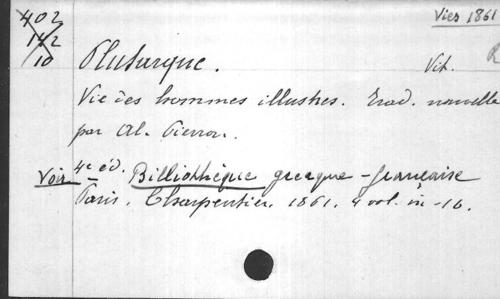 402 Vies 1861
142
10
Plutarque. Vit. R
Vie des hommes illustres. Trad. nouvelle
par Al. Pierron.
4e éd.
Voir Billiothèque grecque-française
Paris. Charpentier. 1861. 4 vol. in-16.